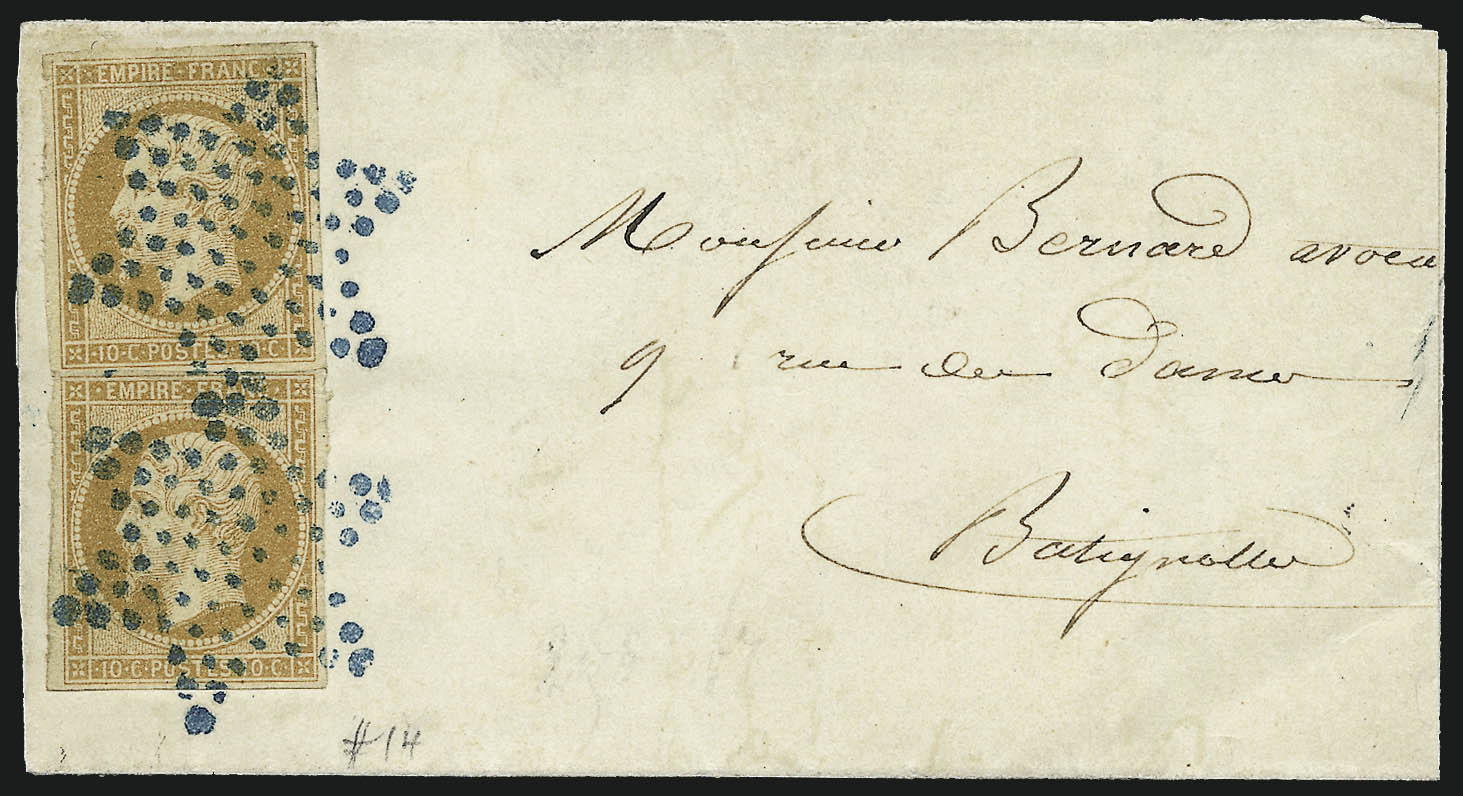 EMPIRE·FRANC
10·C·POSTES·10·C·
EMPIRE·FRANC
10·C·POSTES·10·C·
Monsieur Bernard avoca
9 rue des Dames
Batignolles
#14